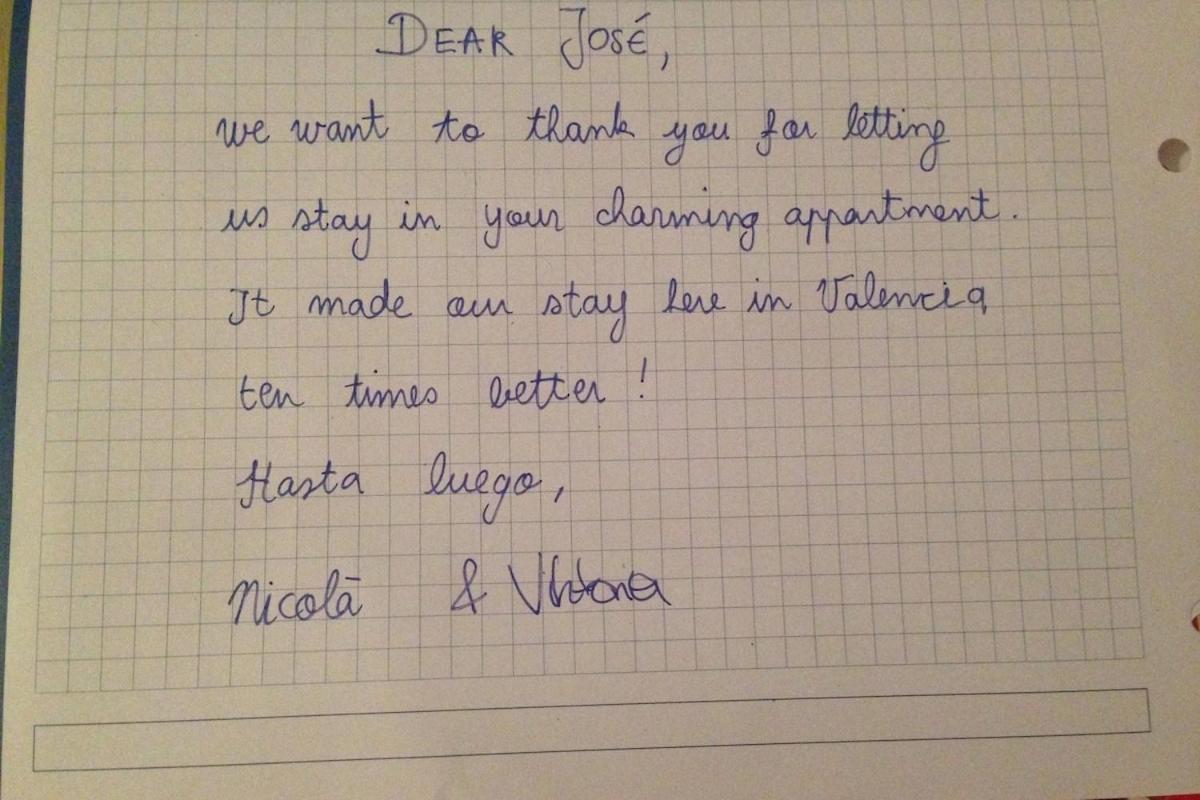 DEAR JOSÉ,
we want to thank you for letting
us stay in your charming appartment.
It made our stay here in Valencia
ten times better!
Hasta luego,
Nicolā &